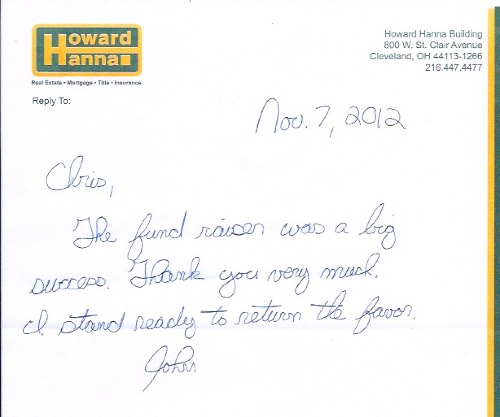 Howard
Hanna
Real Estate • Mortgage • Title • Insurance
Reply To:
Howard Hanna Building
800 W. St. Clair Avenue
Cleveland, OH 44113-1266
216.447.4477
Nov. 7, 2012
Chris,
The fund raiser was a big
success. Thank you very much.
I stand ready to return the favor.
John